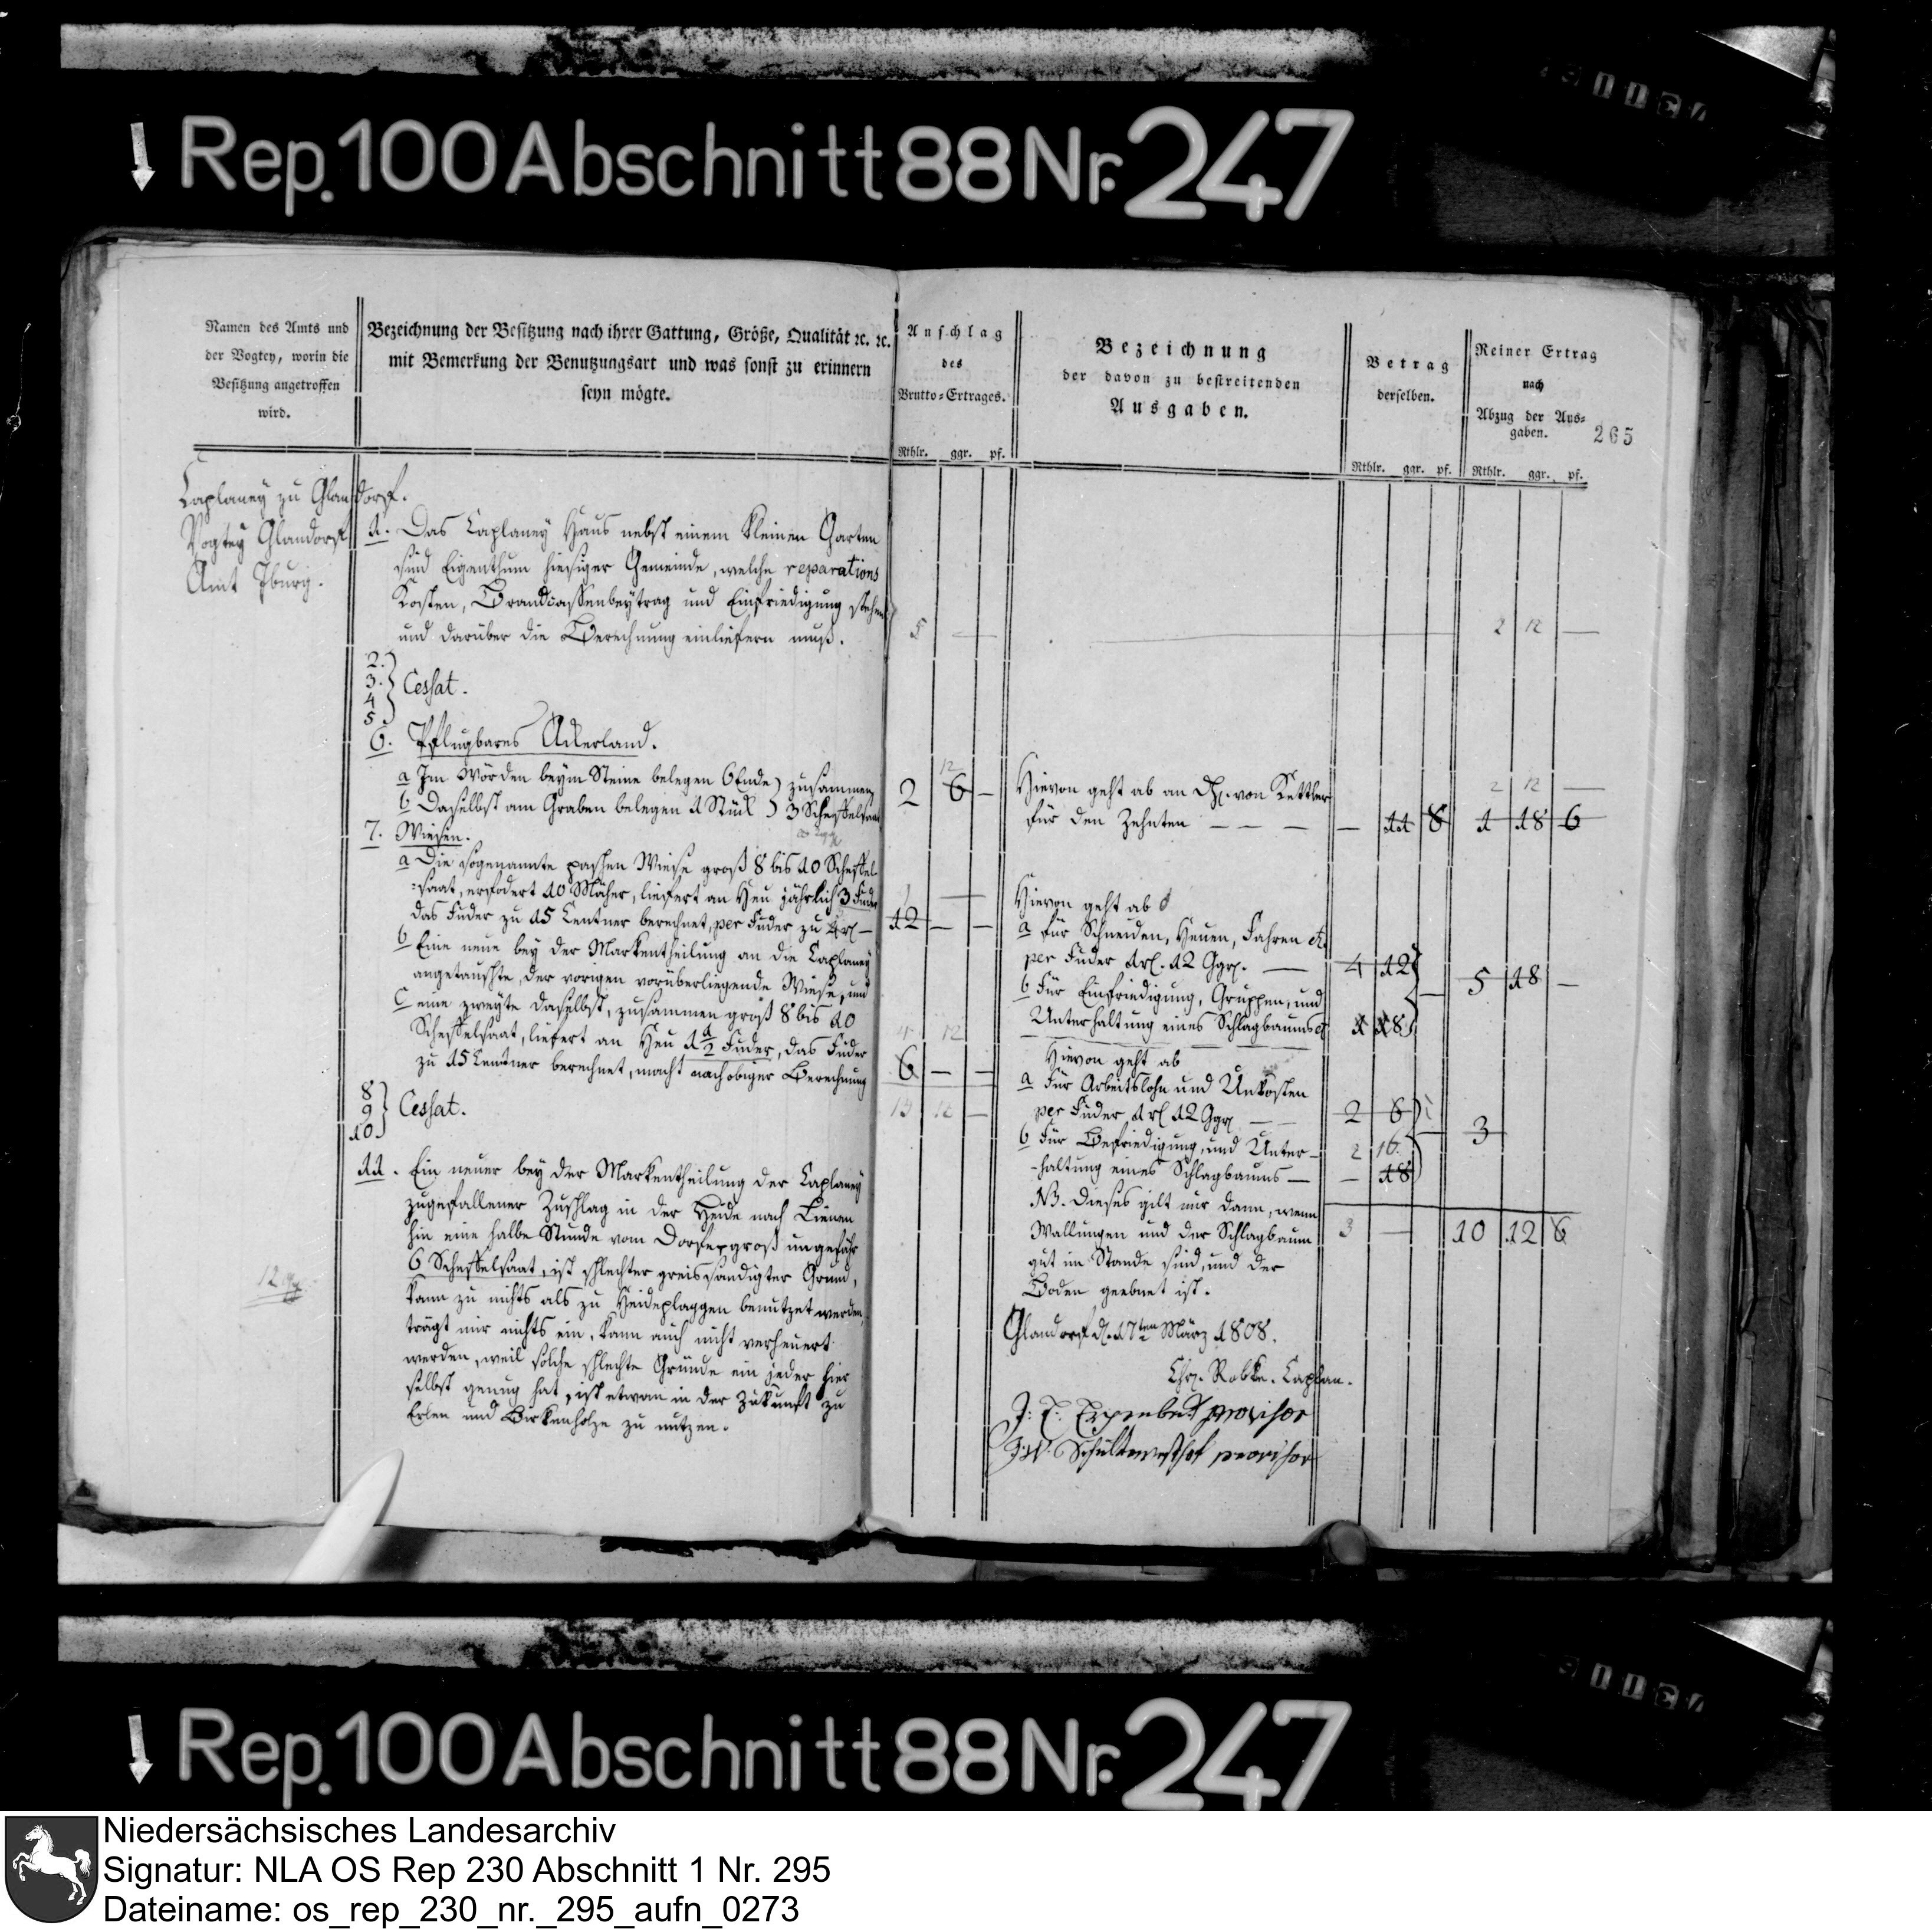 Rep. 100 Abschnitt 88 Nr. 247
Namen des Amts und
der Vogtey, worin die
Besitzung angetroffen
wird.
Bezeichnung der Besitzung nach ihrer Gattung, Größe, Qualität ꝛc. ꝛc.
mit Bemerkung der Benutzungsart und was sonst zu erinnern
seyn mögte.
Anschlag
des
Brutto=Ertrages.
Rthlr. ggr. pf.
Bezeichnung
der davon zu bestreitenden
Ausgaben.
Betrag
derselben.
Rthlr. ggr. pf.
Reiner Ertrag
nach
Abzug der Aus=
gaben.
Rthlr. ggr. pf.
265
Caplaney zu Glandorf.
Vogtey Glandorf
Amt Iburg.
1. Das Caplaney Haus nebst einem kleinen Garten
sind Eigenthum hiesiger Gemeinde, welche reparations
Kosten, Brandcassenbeytrag und Einfriedigung stehen
und darüber die Berechnung einliefern muß.
5 —
2 12 —
2.
3.
4
5
Cessat.
6. Pflugbares Ackerland.
a Im Wörden beym Steine belegen 6 Ende) zusammen
b Daselbst am Graben belegen 1 Stück) 3 Scheffelsaat
12
2 6 —
7. Wiesen.
a Die sogenannte paschen Wiese groß 8 bis 10 Scheffel-
=saat, erfodert 10 Mäher, liefert an Heu jährlich 3 Fuder
das Fuder zu 15 Centner berechnet, per Fuder zu 4 rl —
12 — —
b Eine neue bey der Markentheilung an die Caplaney
angetauschte, der vorigen vorüberliegende Wiese, und
c eine zweyte daselbst, zusammen groß 8 bis 10
Scheffelsaat, liefert an Heu 1 1/2 Fuder, das Fuder
zu 15 Centner berechnet, macht nach obiger Berechnung
4 12
6 — —
13 12 —
8
9
10
Cessat.
11. Ein neuer bey der Markentheilung der Caplaney
zugefallener Zuschlag in der Heide nach Lienen
hin eine halbe Stunde vom Dorfe, groß ungefähr
6 Scheffelsaat, ist schlechter greis sandigter Grund,
kann zu nichts als zu Heideplaggen benutzet werden,
trägt mir nichts ein, kann auch nicht verheuert
werden, weil solche schlechte Gründe ein jeder hier
selbst genug hat, ist etwan in der Zukunft zu
Erlen und Birkenholze zu nutzen.
Hievon geht ab an H. von Kettler
für den Zehnten — — —
— 11 8
2 12 —
1 18 6
Hievon geht ab
a für Schneiden, Heuen, Fahren etc
per Fuder 1 rl. 12 Ggr. —
4 12
b Für Einfriedigung, Gruppen, und
Unterhaltung eines Schlagbaums etc
1 18
5 18 —
Hievon geht ab
a Für Arbeitslohn und Unkosten
per Fuder 1 rl 12 Ggr — —
2 6
b Für Befriedigung, und Unter-
-haltung eines Schlagbaums —
2 16
— 18
3
NB. Dieses gilt nur dann, wenn
Wallungen und der Schlagbaum
gut im Stande sind, und der
Boden geebnet ist.
3 —
10 12 6
Glandorf d. 17ten März 1808.
Chr. Robke. Caplan.
provisor
J.W. Schultewesthof provisor
Rep. 100 Abschnitt 88 Nr. 247
Niedersächsisches Landesarchiv
Signatur: NLA OS Rep 230 Abschnitt 1 Nr. 295
Dateiname: os_rep_230_nr._295_aufn_0273